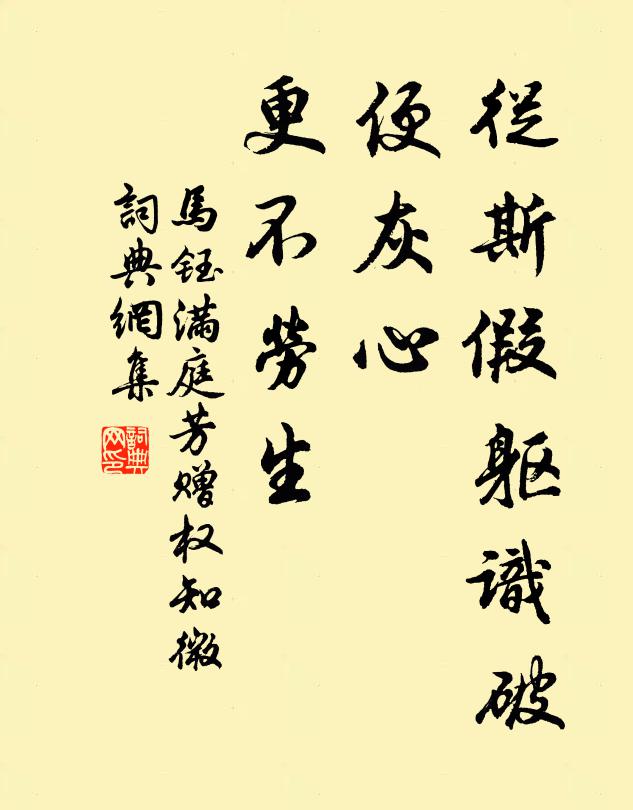 從斯假躯識破
便灰心
更不勞生
馬鈺满庭芳赠权知微
詞典網集
詞典网印